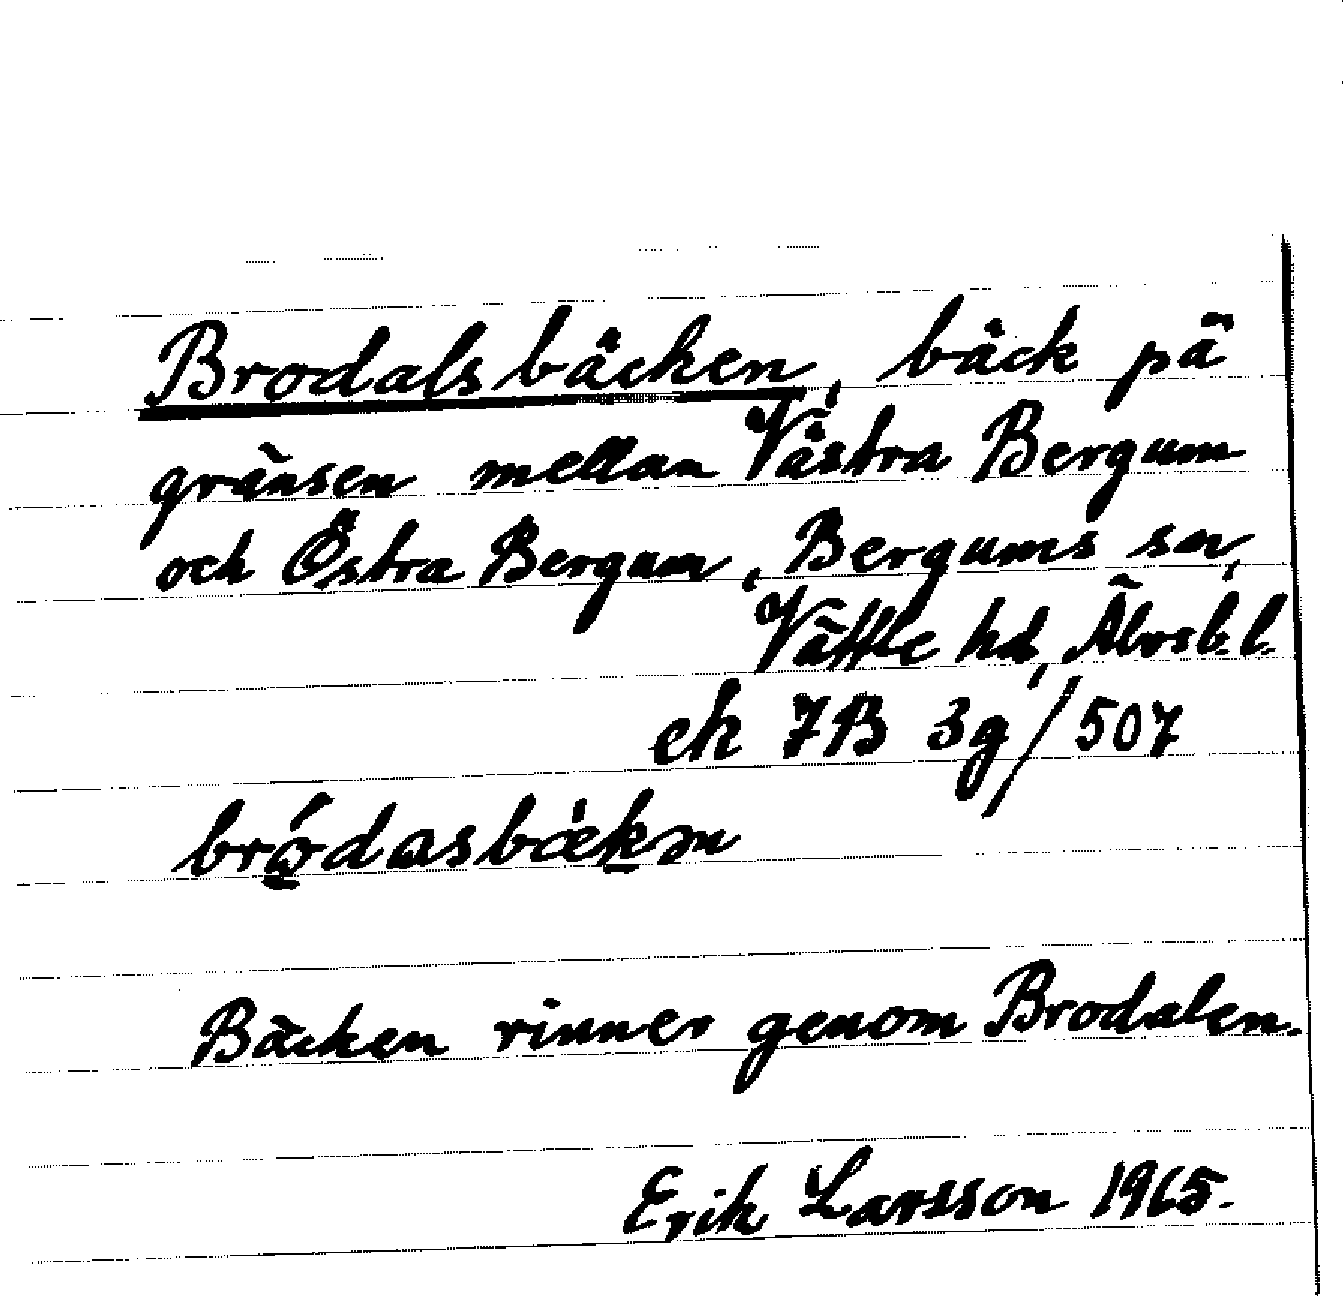 Brodalsbäcken, bäck på
gränsen mellan Västra Bergum
och Östra Bergum, Bergums sn,
Vättle hd, Älvsb. l.
ek 7B 3g/507
bródasbækən
Bäcken rinner genom Brodalen.
Erik Larsson 1965.